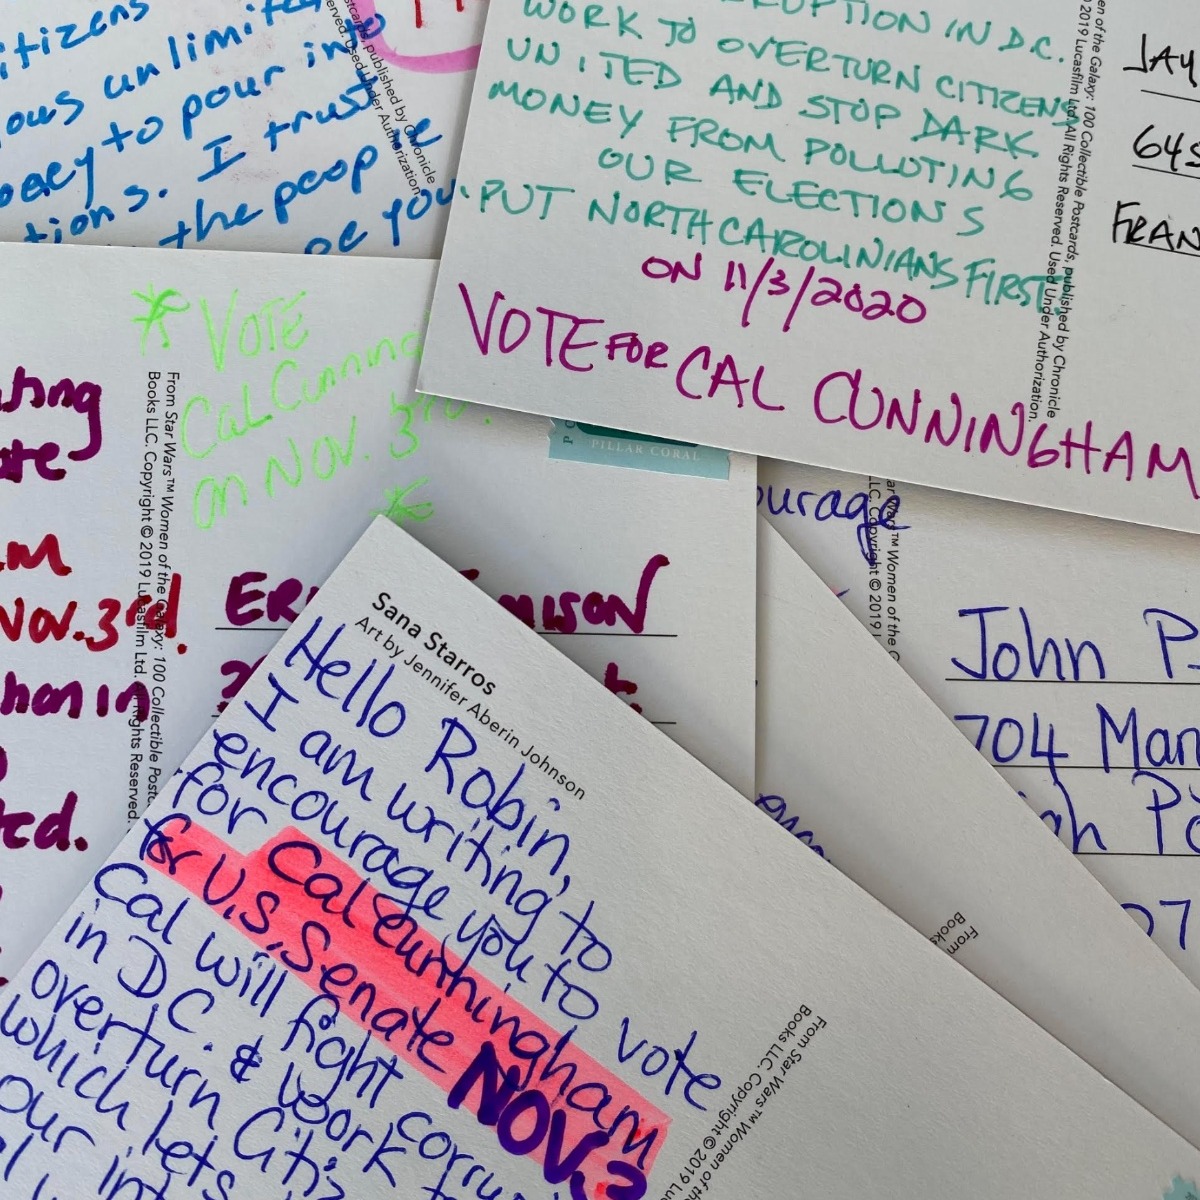 itizens
ous unlimited
oney to pour into
tions. I trust
the people
be you
postcards, published by Chronicle
erved. Used Under Authorization.
RUPTION IN D.C.
WORK TO OVERTURN CITIZENS
UNITED AND STOP DARK
MONEY FROM POLLUTING
OUR ELECTIONS
• PUT NORTH CAROLINIANS FIRST.
ON 11/3/2020
VOTE FOR CAL CUNNINGHAM
en of the Galaxy: 100 Collectible Postcards, published by Chronicle
2019 Lucasfilm Ltd. All Rights Reserved. Used Under Authorization.
JAY
645
FRAN
* VOTE
Cal Cunning
on NOV. 3rd.
*
ote
NOV. 3rd.
ted.
From Star Wars™ Women of the Galaxy: 100 Collectible Postc
Books LLC. Copyright © 2019 Lucasfilm Ltd. All Rights Reserved.
ER
MISON
PILLAR CORAL
ourage
ar Wars™ Women of the G
LLC. Copyright © 2019 L
John P
704 Man
gh Po
07
From
Books
Sana Starros
Art by Jennifer Aberin Johnson
Hello Robin,
I am writing to
encourage you to vote
for Cal Cunningham
for U.S. Senate NOV. 3
Cal will fight corru
in D.C. & work t
overturn Citiz
which lets
our int
From Star Wars™ Women of the
Books LLC. Copyright © 2019 Luc